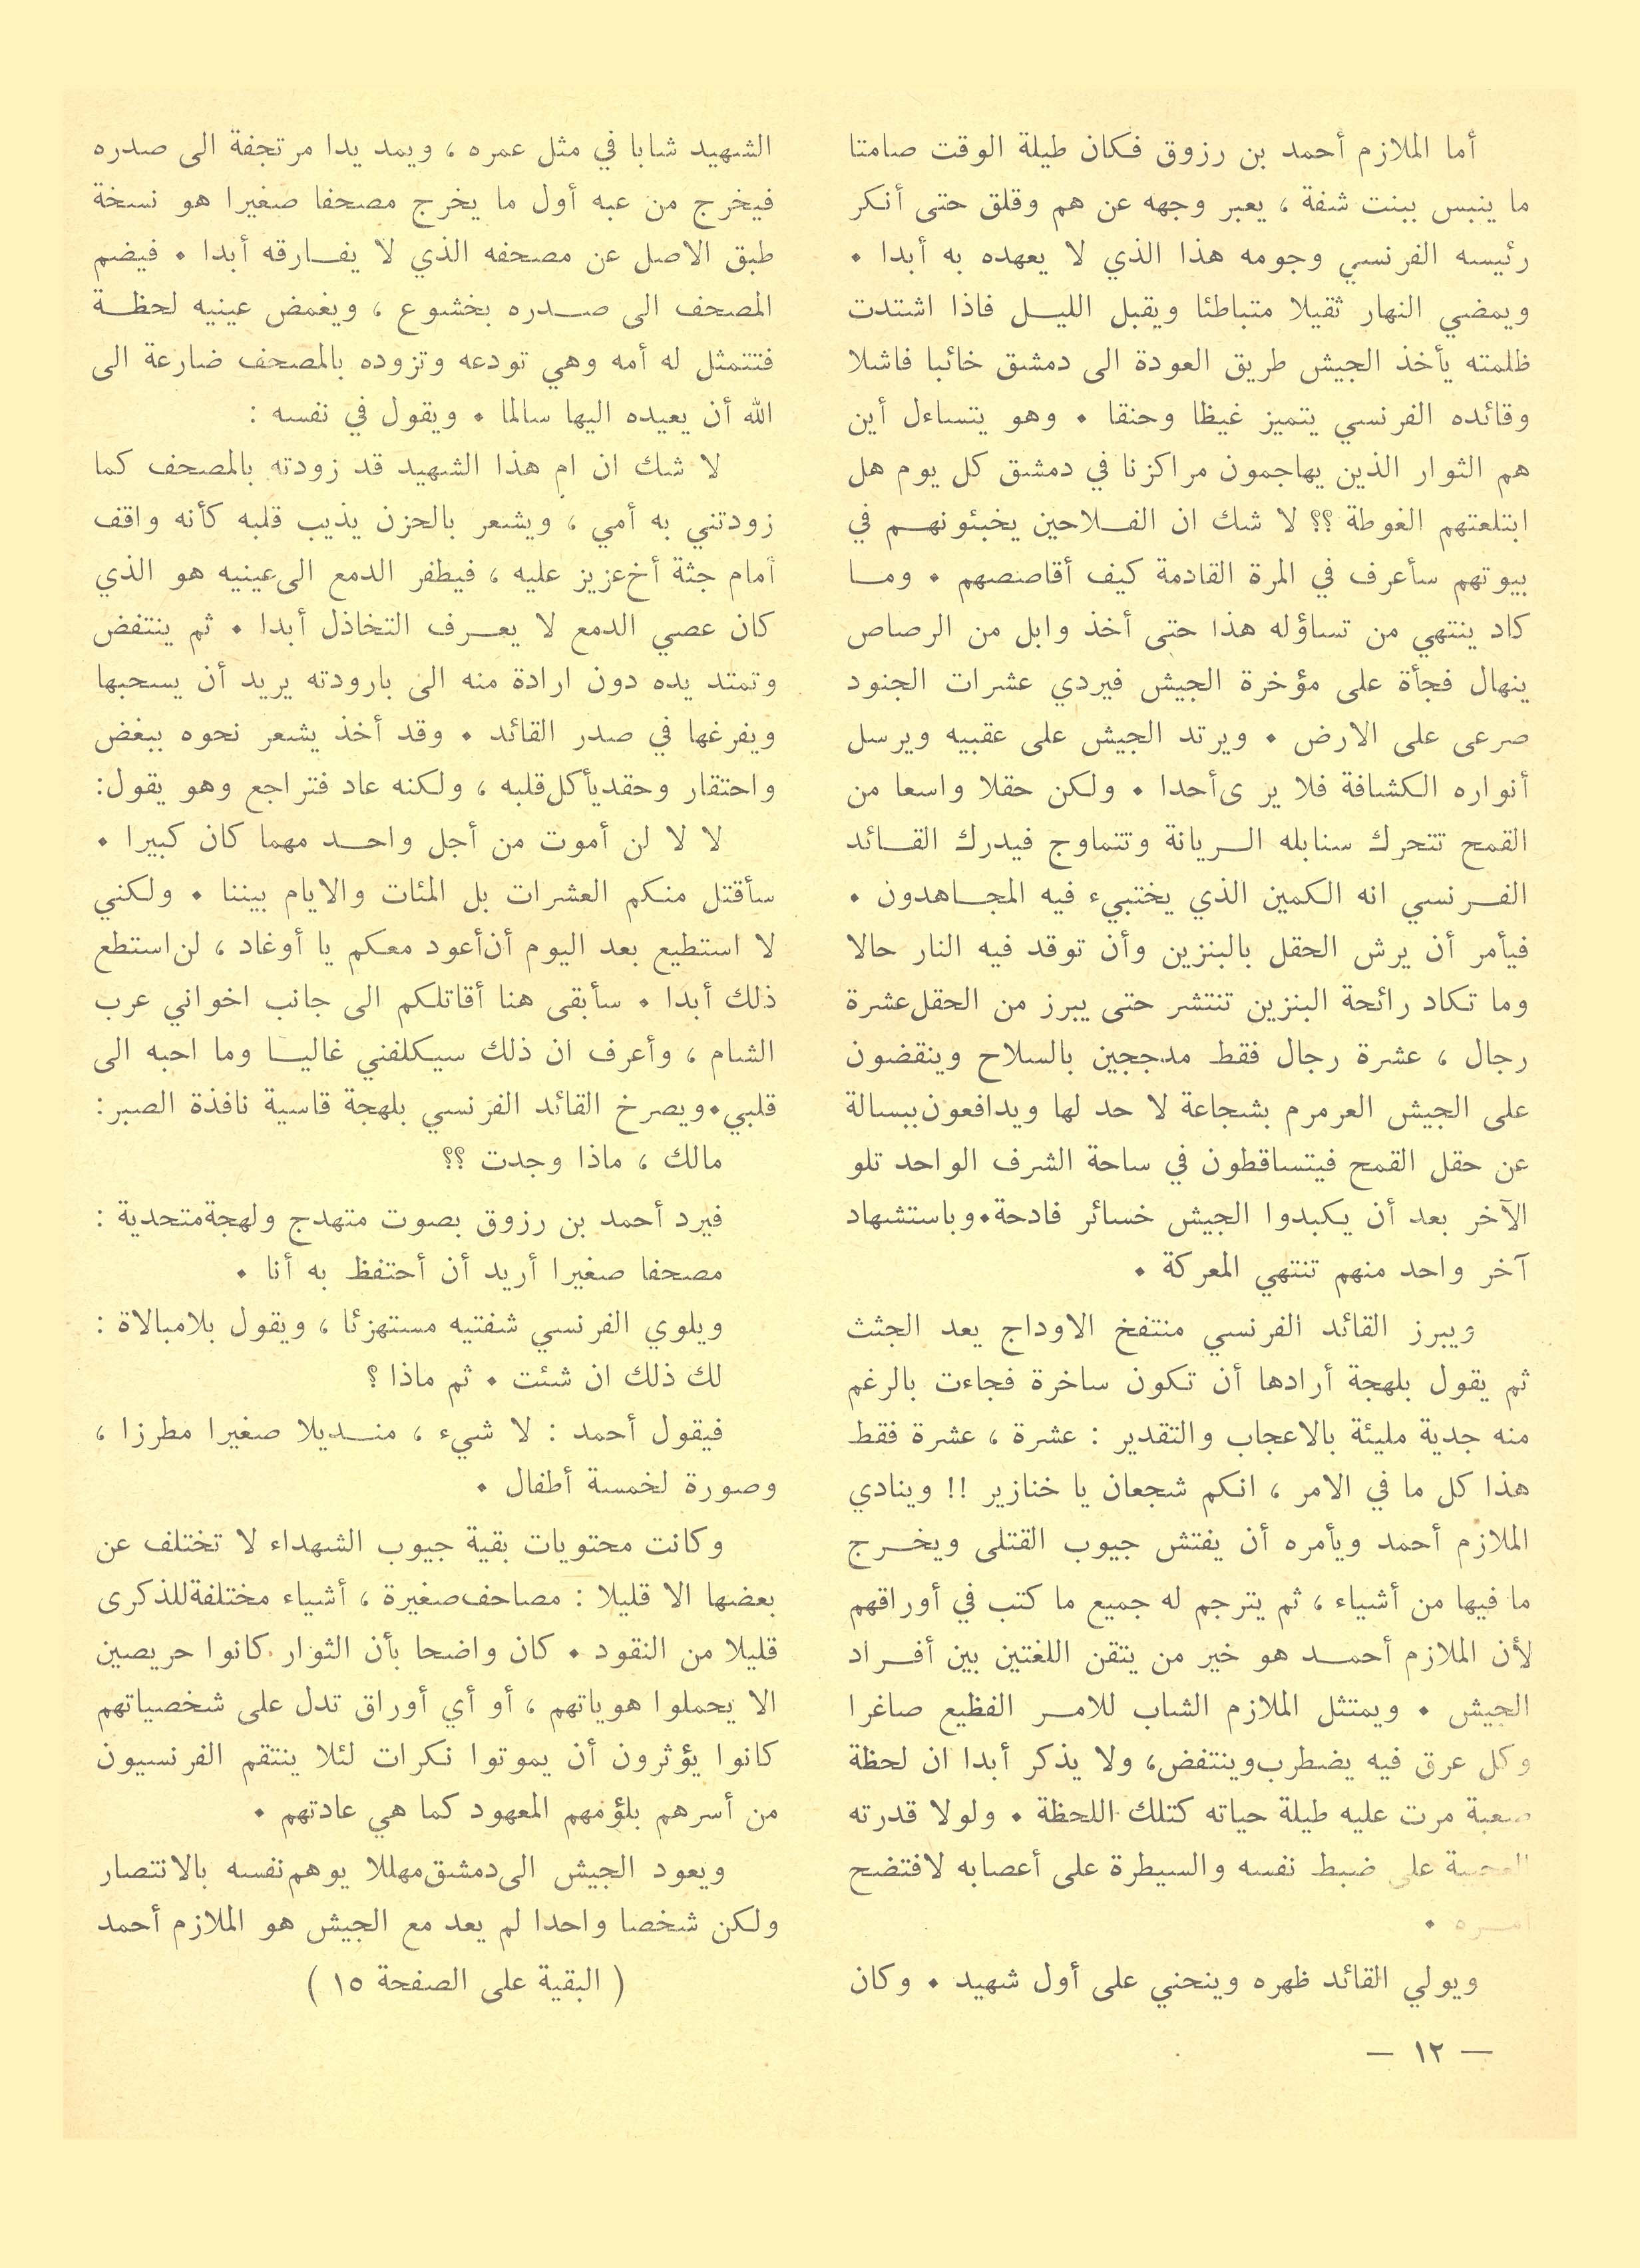 أما الملازم أحمد بن رزوق فكان طيلة الوقت صامتا
ما ينبس ببنت شفة ، يعبر وجهه عن هم وقلق حتى أنكر
رئيسه الفرنسي وجومه هذا الذي لا يعهده به أبدا •
ويمضي النهار ثقيلا متباطئا ويقبل الليل فاذا اشتدت
ظلمته يأخذ الجيش طريق العودة الى دمشق خائبا فاشلا
وقائده الفرنسي يتميز غيظا وحنقا • وهو يتساءل أين
هم الثوار الذين يهاجمون مراكزنا في دمشق كل يوم هل
ابتلعتهم الغوطة ؟؟ لا شك ان الفلاحين يخبئونهم في
بيوتهم سأعرف في المرة القادمة كيف أقاصصهم • وما
كاد ينتهي من تساؤله هذا حتى أخذ وابل من الرصاص
ينهال فجأة على مؤخرة الجيش فيردي عشرات الجنود
صرعى على الارض • ويرتد الجيش على عقبيه ويرسل
أنواره الكشافة فلا يرى أحدا • ولكن حقلا واسعا من
القمح تتحرك سنابله الريانة وتتماوج فيدرك القائد
الفرنسي انه الكمين الذي يختبيء فيه المجاهدون •
فيأمر أن يرش الحقل بالبنزين وأن توقد فيه النار حالا
وما تكاد رائحة البنزين تنتشر حتى يبرز من الحقل عشرة
رجال ، عشرة رجال فقط مدججين بالسلاح وينقضون
على الجيش العرمرم بشجاعة لا حد لها ويدافعون ببسالة
عن حقل القمح فيتساقطون في ساحة الشرف الواحد تلو
الآخر بعد أن يكبدوا الجيش خسائر فادحة • وباستشهاد
آخر واحد منهم تنتهي المعركة •
ويبرز القائد الفرنسي منتفخ الاوداج يعد الجثث
ثم يقول بلهجة أرادها أن تكون ساخرة فجاءت بالرغم
منه جدية مليئة بالاعجاب والتقدير : عشرة ، عشرة فقط
هذا كل ما في الامر ، انكم شجعان يا خنازير !! وينادي
الملازم أحمد ويأمره أن يفتش جيوب القتلى ويخرج
ما فيها من أشياء ، ثم يترجم له جميع ما كتب في أوراقهم
لأن الملازم أحمد هو خير من يتقن اللغتين بين أفراد
الجيش • ويمتثل الملازم الشاب للامر الفظيع صاغرا
وكل عرق فيه يضطرب وينتفض، ولا يذكر أبدا ان لحظة
صعبة مرت عليه طيلة حياته كتلك اللحظة • ولولا قدرته
العجيبة على ضبط نفسه والسيطرة على أعصابه لافتضح
أمره •
ويولي القائد ظهره وينحني على أول شهيد • وكان
الشهيد شابا في مثل عمره ، ويمد يدا مرتجفة الى صدره
فيخرج من عبه أول ما يخرج مصحفا صغيرا هو نسخة
طبق الاصل عن مصحفه الذي لا يفارقه أبدا • فيضم
المصحف الى صدره بخشوع ، ويغمض عينيه لحظة
فتتمثل له أمه وهي تودعه وتزوده بالمصحف ضارعة الى
الله أن يعيده اليها سالما • ويقول في نفسه :
لا شك ان ام هذا الشهيد قد زودته بالمصحف كما
زودتني به أمي ، ويشعر بالحزن يذيب قلبه كأنه واقف
أمام جثة أخ عزيز عليه ، فيطفر الدمع الى عينيه هو الذي
كان عصي الدمع لا يعرف التخاذل أبدا • ثم ينتفض
وتمتد يده دون ارادة منه الى بارودته يريد أن يسحبها
ويفرغها في صدر القائد • وقد أخذ يشعر نحوه ببغض
واحتقار وحقد يأكل قلبه ، ولكنه عاد فتراجع وهو يقول:
لا لا لن أموت من أجل واحد مهما كان كبيرا •
سأقتل منكم العشرات بل المئات والايام بيننا • ولكني
لا استطيع بعد اليوم أن أعود معكم يا أوغاد ، لن استطع
ذلك أبدا • سأبقى هنا أقاتلكم الى جانب اخواني عرب
الشام ، وأعرف ان ذلك سيكلفني غاليا وما احبه الى
قلبي • ويصرخ القائد الفرنسي بلهجة قاسية نافذة الصبر:
مالك ، ماذا وجدت ؟؟
فيرد أحمد بن رزوق بصوت متهدج ولهجة متحدية :
مصحفا صغيرا أريد أن أحتفظ به أنا •
ويلوي الفرنسي شفتيه مستهزئا ، ويقول بلامبالاة :
لك ذلك ان شئت • ثم ماذا ؟
فيقول أحمد : لا شيء ، منديلا صغيرا مطرزا ،
وصورة لخمسة أطفال •
وكانت محتويات بقية جيوب الشهداء لا تختلف عن
بعضها الا قليلا : مصاحف صغيرة ، أشياء مختلفة للذكرى
قليلا من النقود • كان واضحا بأن الثوار كانوا حريصين
الا يحملوا هوياتهم ، أو أي أوراق تدل على شخصياتهم
كانوا يؤثرون أن يموتوا نكرات لئلا ينتقم الفرنسيون
من أسرهم بلؤمهم المعهود كما هي عادتهم •
ويعود الجيش الى دمشق مهللا يوهم نفسه بالانتصار
ولكن شخصا واحدا لم يعد مع الجيش هو الملازم أحمد
( البقية على الصفحة ١٥ )
— ١٢ —